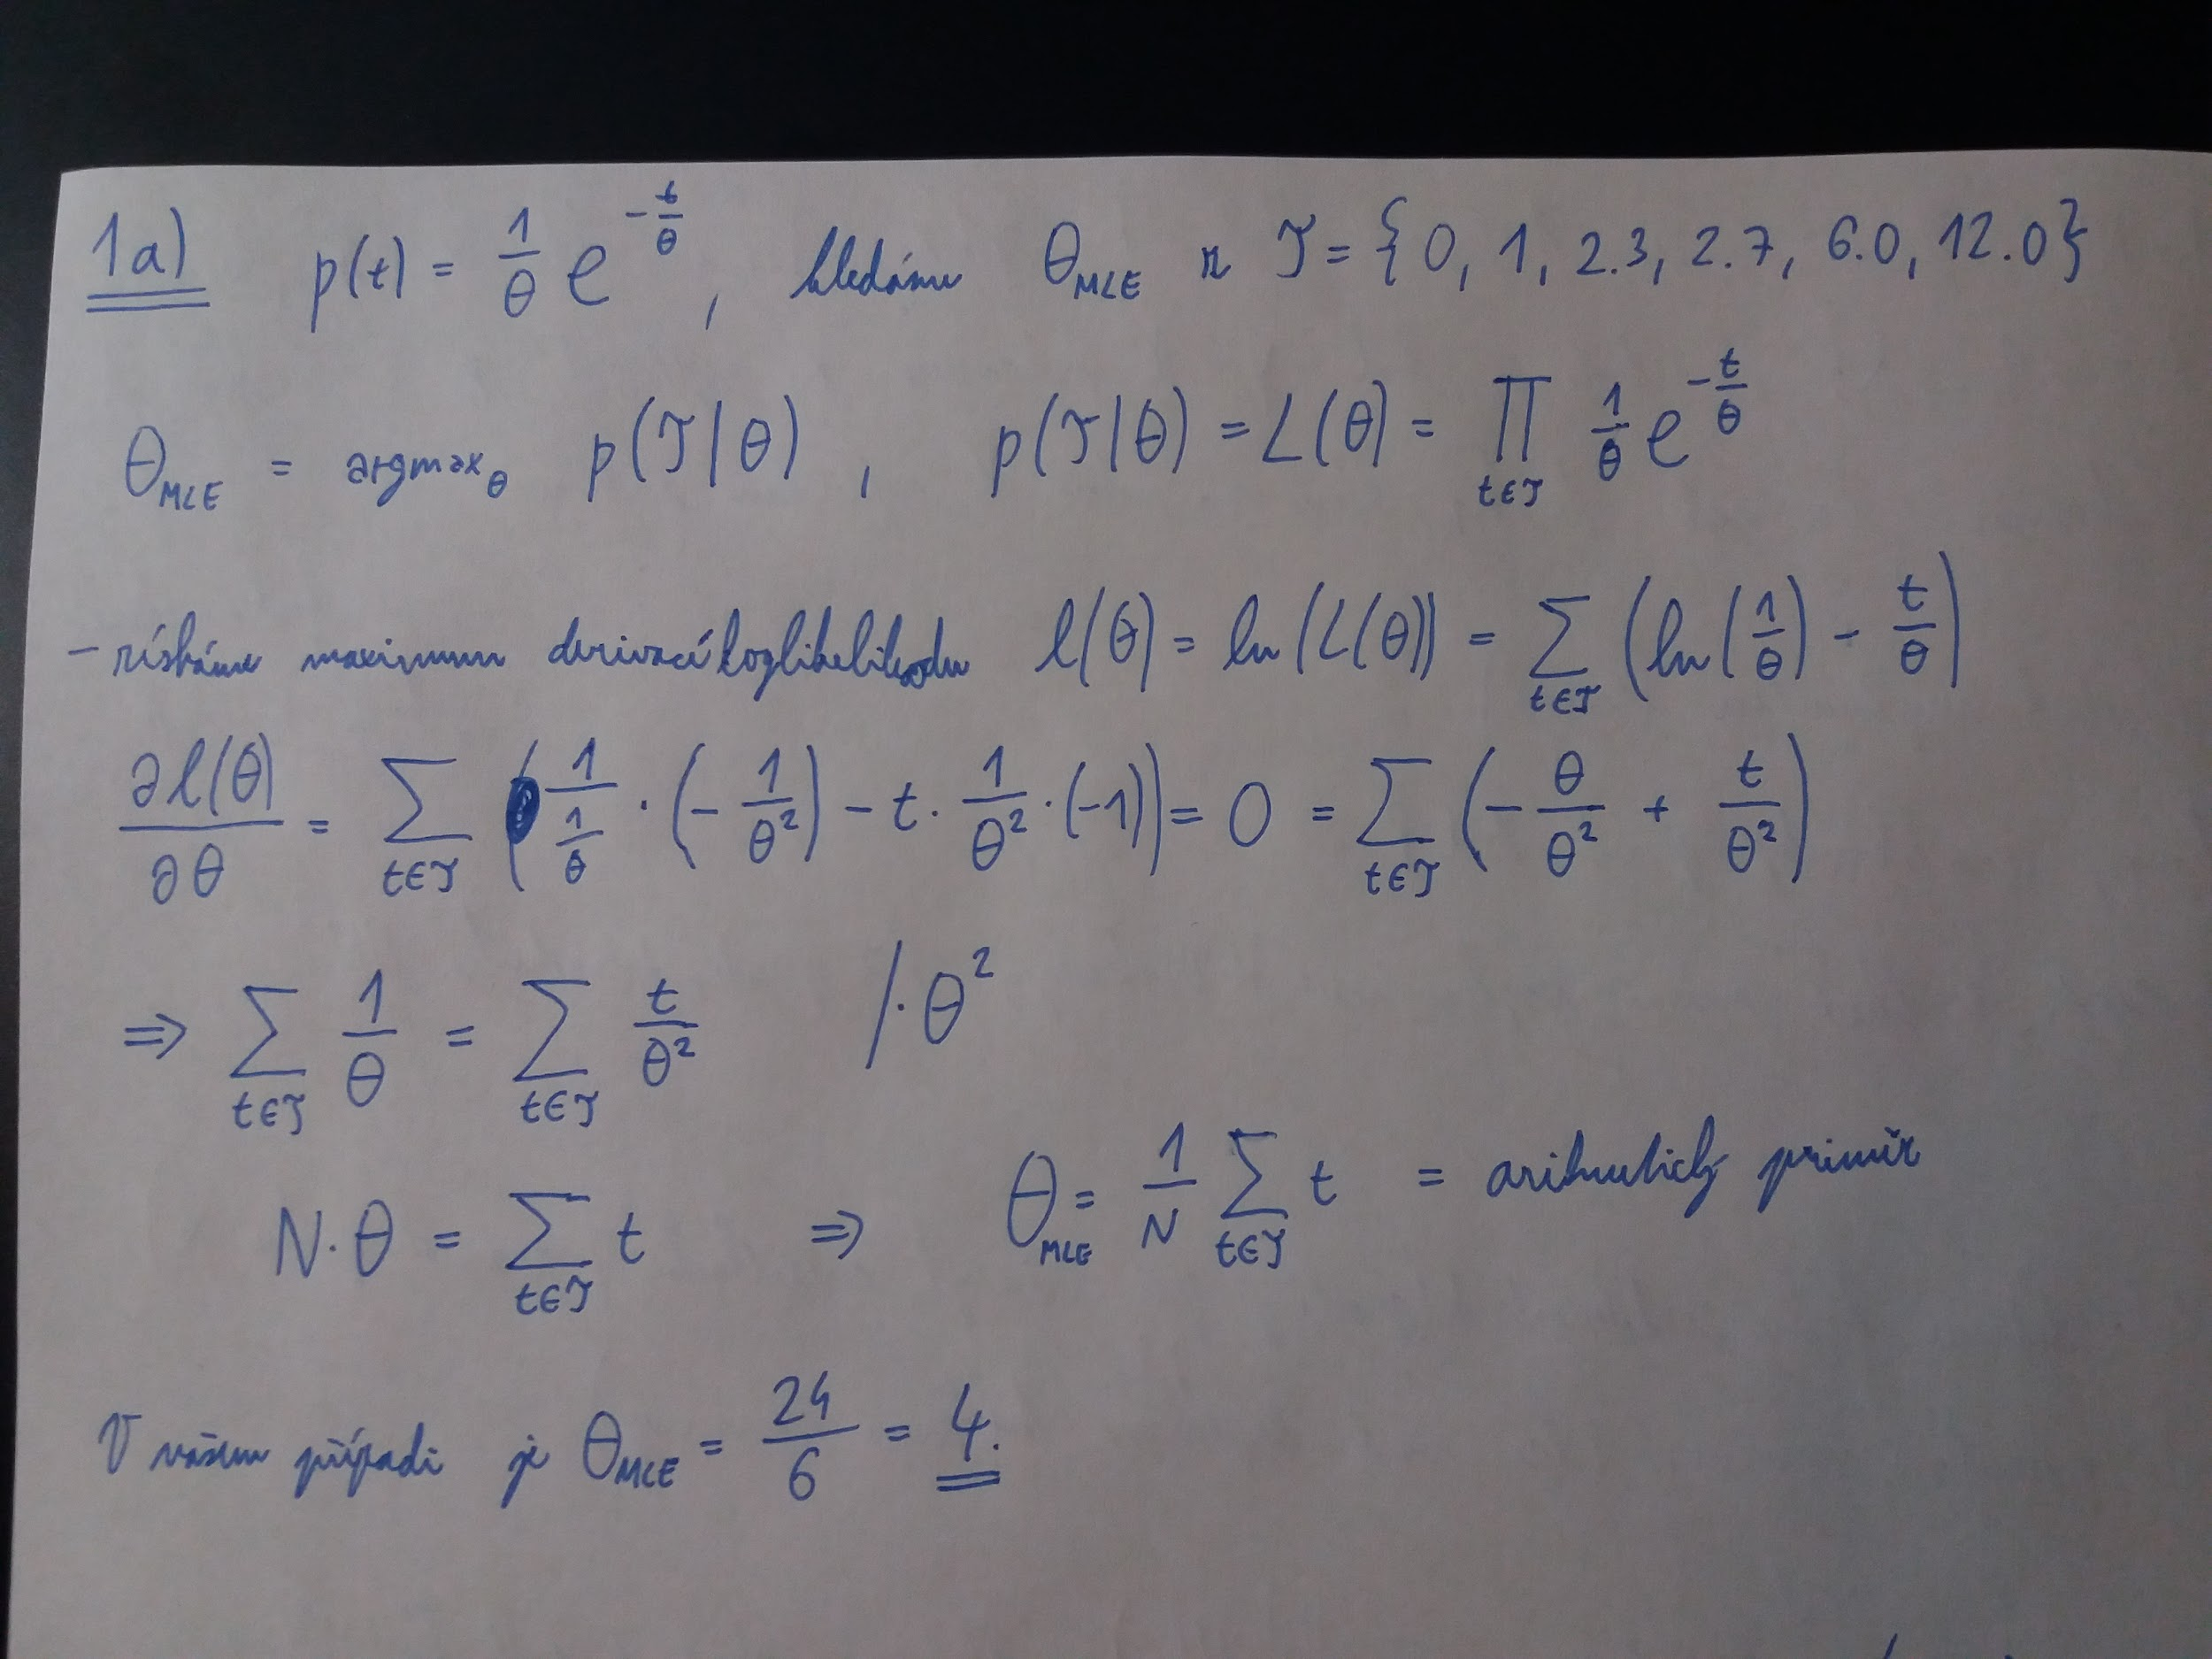 1a) p(t) = 1/θ e^(-t/θ), hledáme θ_MLE z T = {0, 1, 2.3, 2.7, 6.0, 12.0}
θ_MLE = argmax_θ p(T|θ), p(T|θ) = L(θ) = ∏_(t∈T) 1/θ e^(-t/θ)
- získáme maximum derivací loglikelihoodu l(θ) = ln(L(θ)) = ∑_(t∈T) (ln(1/θ) - t/θ)
∂l(θ)/∂θ = ∑_(t∈T) (1/(1/θ) · (-1/θ²) - t · 1/θ² · (-1)) = 0 = ∑_(t∈T) (-θ/θ² + t/θ²)
⇒ ∑_(t∈T) 1/θ = ∑_(t∈T) t/θ² /· θ²
N·θ = ∑_(t∈T) t ⇒ θ_MLE = 1/N ∑_(t∈T) t = aritmetický průměr
V našem případě je θ_MLE = 24/6 = 4.